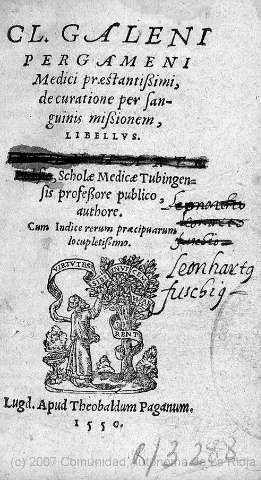 CL. GALENI
PERGAMENI
Medici præstantißimi,
de curatione per san-
guinis mißionem,
LIBELLVS.
, Scholæ Medicæ Tubingen-
sis profeßore publico,
authore.
Cum Indice rerum præcipuarum
locupletißimo.
Leonhartus
fuschius
VIRTVTES
Lugd. Apud Theobaldum Paganum.
1550.
R/3 288
(c) 2007 Comunidad Autónoma de La Rioja